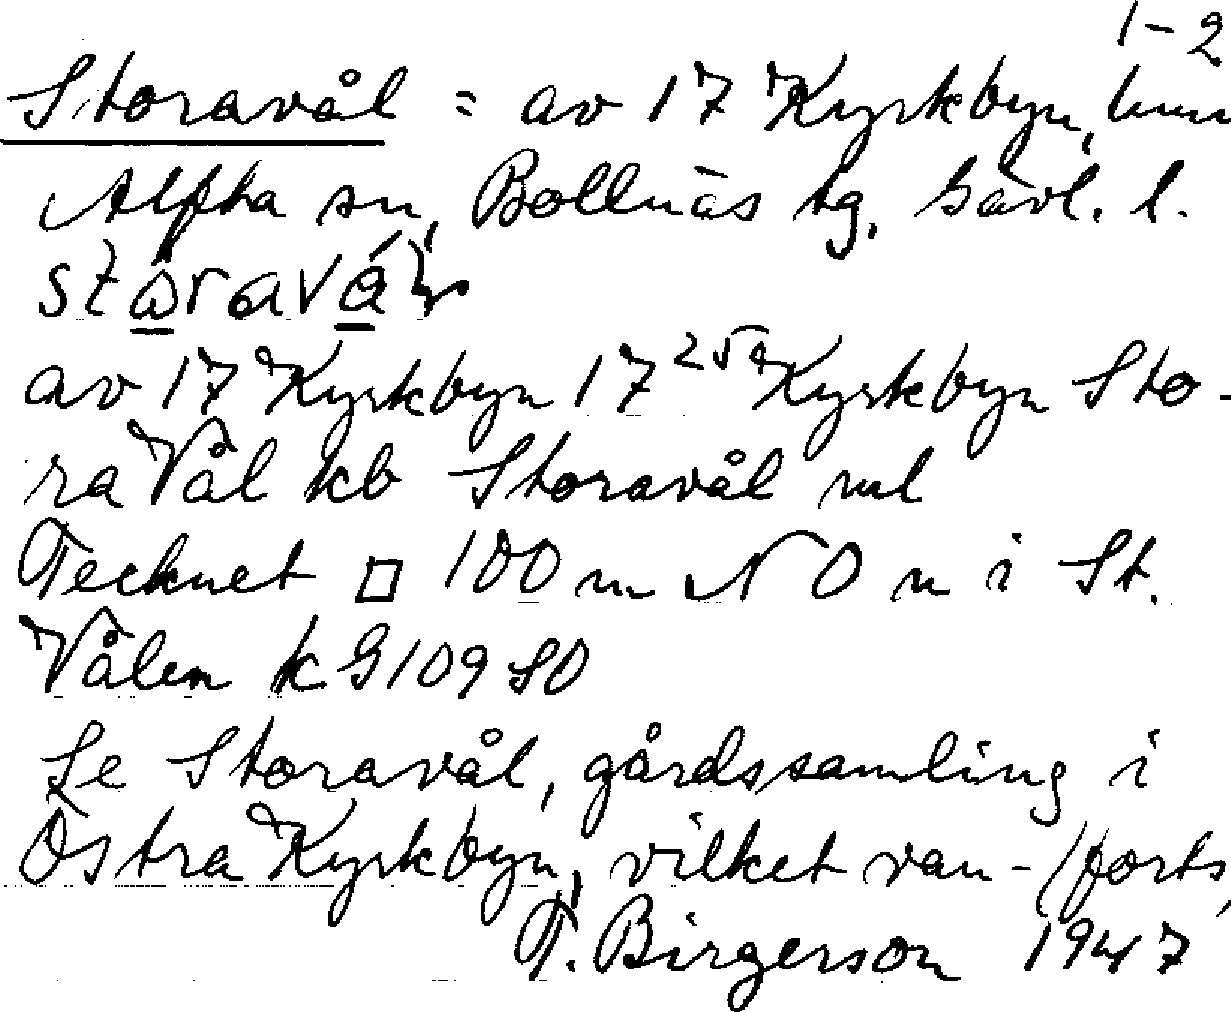 1-2
Storavål = av 17 Kyrkbyn, hmn
Alfta sn, Bollnäs tg. Gävl. l.
av 17 Kyrkbyn 17²⁵ Kyrkbyn Sto-
ra Vål kb Storavål ml
Tecknet □ 100 m NO n i St.
Vålen k G109 SO
Se Storavål, gårdssamling i
Östra Kyrkbyn, vilket van- /forts,
T. Birgerson 1947